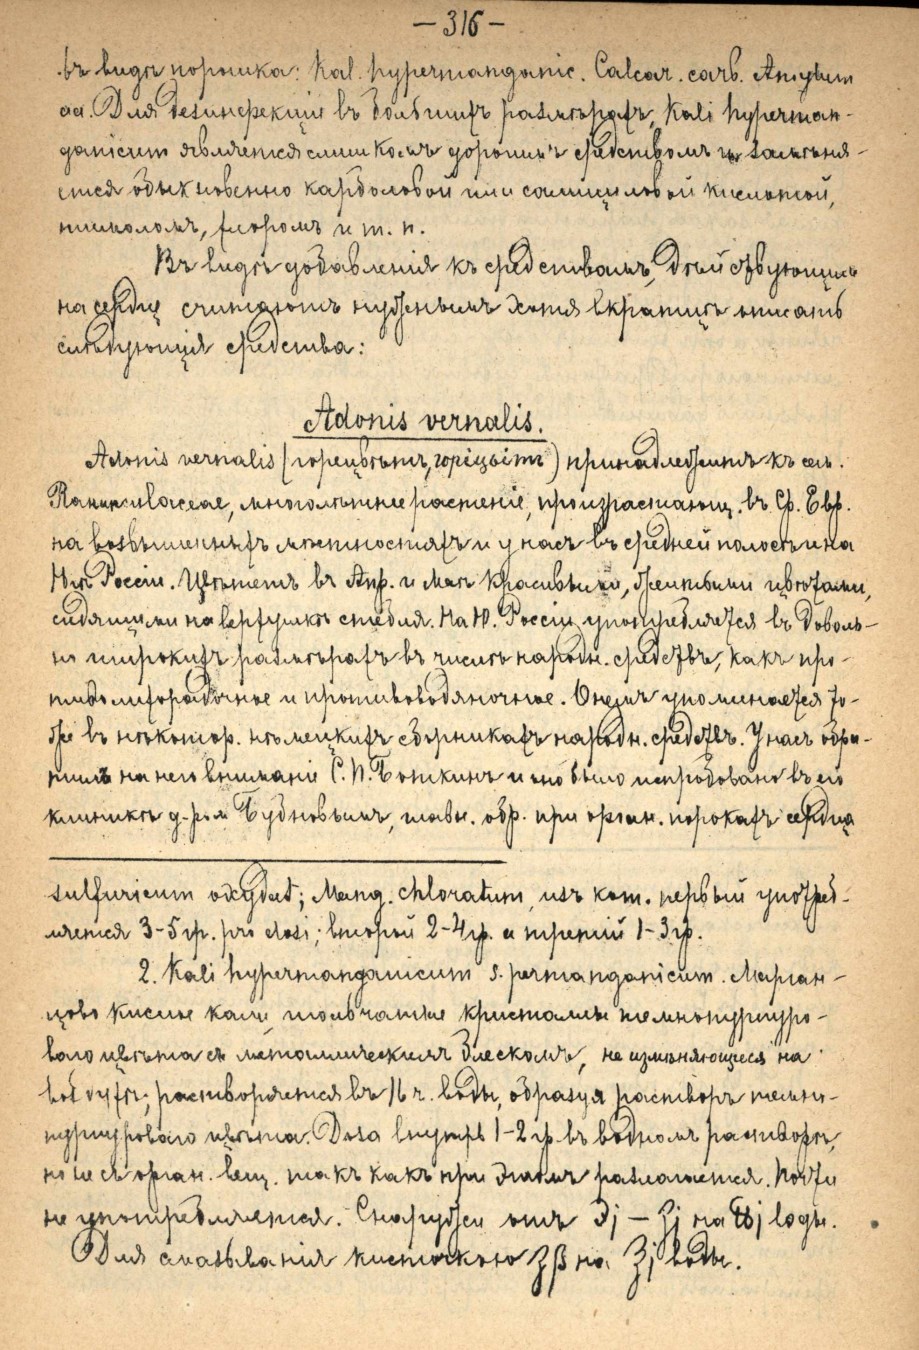 — 316 —
въ видѣ порошка: Kal. hypermanganic. Calcar. carb. Amylum
aa. Для дезинфекціи въ большихъ размѣрахъ, Kali hyperman-
ganicum является слишкомъ дорогимъ средствомъ и замѣня-
ется обыкновенно карболовой или салициловой кислотой,
тимоломъ, хлоромъ и т. п.
Въ видѣ добавленія къ средствамъ, дѣйствующимъ
на сердце считаютъ нужнымъ хотя вкратцѣ описать
слѣдующія средства:
Adonis vernalis.
Adonis vernalis (горецвѣтъ, горіцьітъ) принадлежитъ къ сем.
Ranunculaceae, многолѣтнее растеніе, произрастающ. въ Ср. Евр.
на возвышенныхъ мѣстностяхъ и у насъ въ средней полосѣ и на
Югѣ Россіи. Цвѣтетъ въ Апр. и Маѣ красивыми, желтыми цвѣтами,
сидящими на верхушкѣ стебля. На Ю. Россіи употребляется въ доволь-
но широкихъ размѣрахъ въ числѣ народн. средствъ, какъ про-
тиволихорадочное и противоводяночное. О немъ упоминается то-
же въ нѣкотор. нѣмецкихъ сборникахъ народн. средствъ. У насъ обра-
тилъ на него вниманіе С. П. Боткинъ и оно было испробовано въ его
клиникѣ д-ромъ Бубновымъ, главн. обр. при орган. порокахъ сердца
sulfuricum oxydat; Mang. chloratum, изъ кот. первый употреб-
ляется 3-5 гр. pro dosi; второй 2-4 гр. а третій 1-3 гр.
2. Kali hypermanganicum s. permanganicum. Марган-
цово кислое кали, игольчатые кристаллы темнопурпуро-
ваго цвѣта съ металлическимъ блескомъ, не измѣняющіеся на
воздухѣ; растворяется въ 16 ч. воды, образуя растворъ темно-
пурпуроваго цвѣта. Доза внутрь 1-2 гр. въ водномъ растворѣ,
но не съ орган. вещ. такъ какъ при этомъ разлагается. Почти
не употребляется. Снаружи отъ ℈j — ʒj на ℔j воды.
Для смазыванія кисточкою ʒβ на ℥j воды.